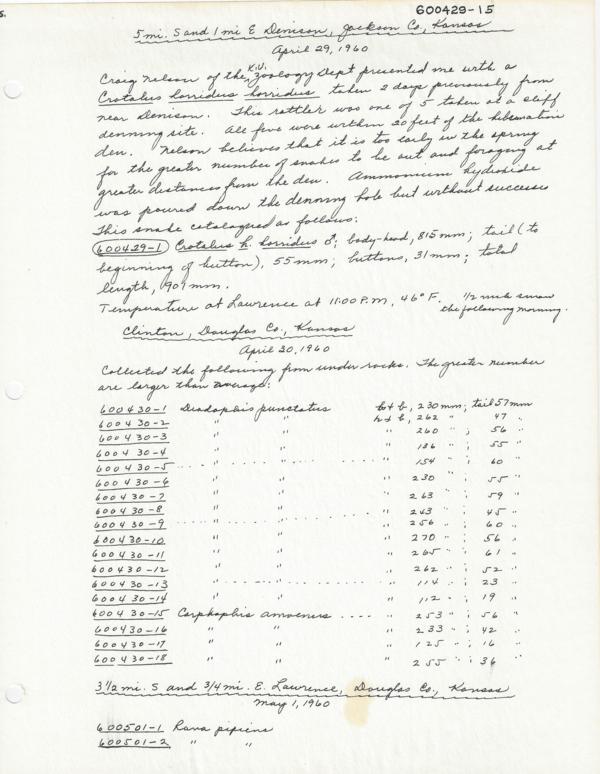 s.
600429-15
5 mi. S and 1 mi E Denison, Jackson Co., Kansas
April 29, 1960
Craig Nelson of the K.U. Zoology Dept presented me with a
Crotalus horridus horridus taken 2 days previously from
near Denison. This rattler was one of 5 taken at a cliff
denning site. All five were within 20 feet of the hibernation
den. Nelson believes that it is too early in the spring
for the greater number of snakes to be out and foraging at
greater distances from the den. Ammonium hydroxide
was poured down the denning hole but without successes
This snake catalogued as follows:
600429-1 Crotalus h. horridus ♂; body-head, 815 mm; tail (to
beginning of button), 55 mm; buttons, 31 mm; total
length, 901 mm.
Temperature at Lawrence at 11:00 P.M, 46° F. 1/2 inch snow
the following morning.
Clinton, Douglas Co., Kansas
April 30, 1960
Collected the following from under rocks. The greater number
are larger than average:
600430-1 Diadophis punctatus h + b, 230 mm; tail 57 mm
600430-2 " " h + b, 262 " 47 "
600430-3 " " " 260 " ; 56 "
600430-4 " " " 186 " ; 55 "
600430-5 " " " 154 " ; 60 "
600430-6 " " " 230 " ; 55 "
600430-7 " " " 263 " ; 59 "
600430-8 " " " 243 " ; 45 "
600430-9 " " " 256 " ; 60 "
600430-10 " " " 270 " ; 56 "
600430-11 " " " 265 " ; 61 "
600430-12 " " " 262 " ; 52 "
600430-13 " " " 114 " ; 23 "
600430-14 " " " 112 " ; 19 "
600430-15 Carphophis amoenus .... " 253 " ; 56 "
600430-16 " " " 233 " ; 42 "
600430-17 " " " 125 " ; 16 "
600430-18 " " " 255 " ; 36 "
3 1/2 mi. S and 3/4 mi. E. Lawrence, Douglas Co., Kansas
May 1, 1960
600501-1 Rana pipiens
600501-2 " "